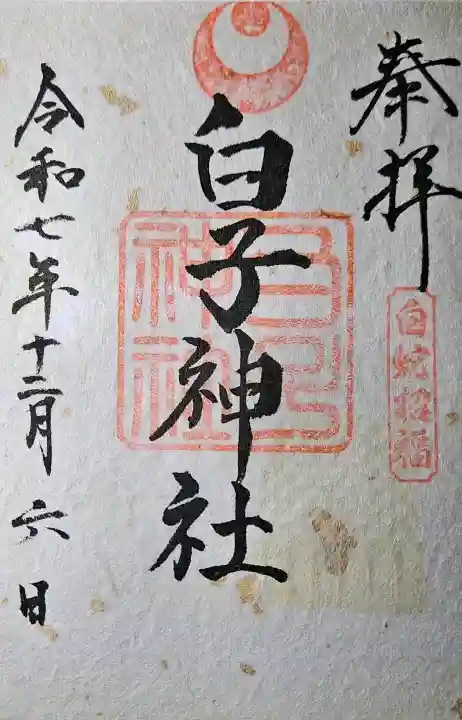 奉拝
白蛇招福
白子神社
白子神社
令和七年十二月六日